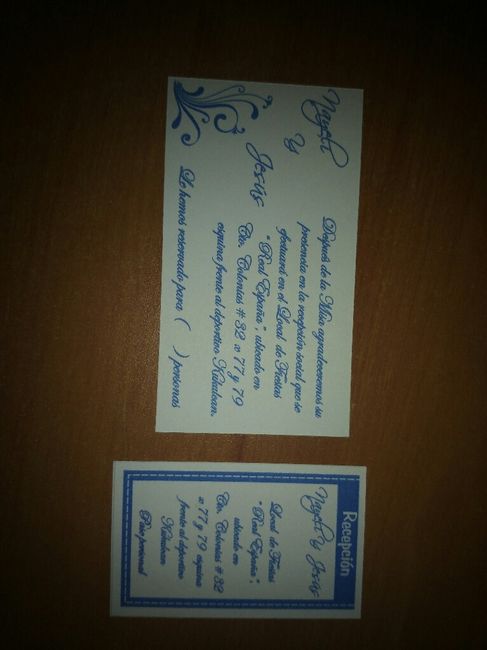 Nayeli
Y
Jesús
Después de la Misa agradeceremos su
presencia en la recepción social que se
efectuará en el Local de Fiestas
"Real España", ubicado en
Cto. Colonias # 32 x 77 y 79
esquina frente al deportivo Kukulcan.
Le hemos reservado para ( ) personas
Recepción
Nayeli y Jesús
Local de Fiestas
"Real España",
ubicado en
Cto. Colonias # 32
x 77 y 79 esquina
frente al deportivo
Kukulcan
Pase personal